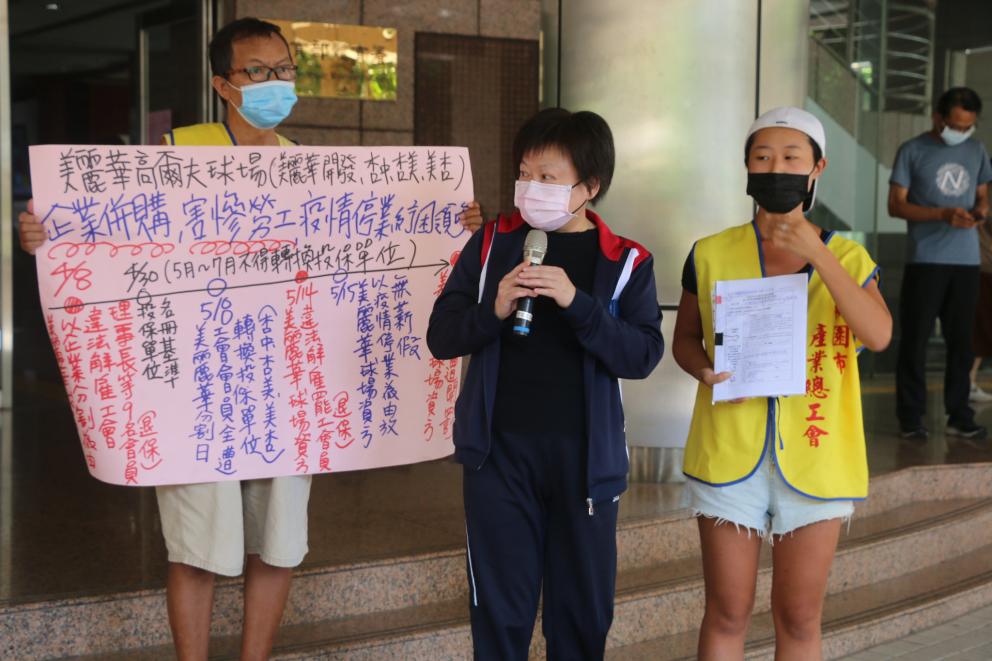 美麗華高爾夫球場(美麗華開發,杏中杏美,美杏)
企業併購,害慘勞工疫情停業紓困領
4/8
4/30(5月~7月不得轉換投保單位)
以企業分割為由
違法解雇工會
理事長等9名會員(退保)
投保單位
名冊基準
5/8
美麗華分割日
工會會員全遭
轉換投保單位
(杏中杏美,美杏)
5/14
美麗華球場資方
違法解雇罷工會員(退保)
5/15
美麗華球場資方
以疫情停業為由放
無薪假
球場資方
園市
產業總工會
N